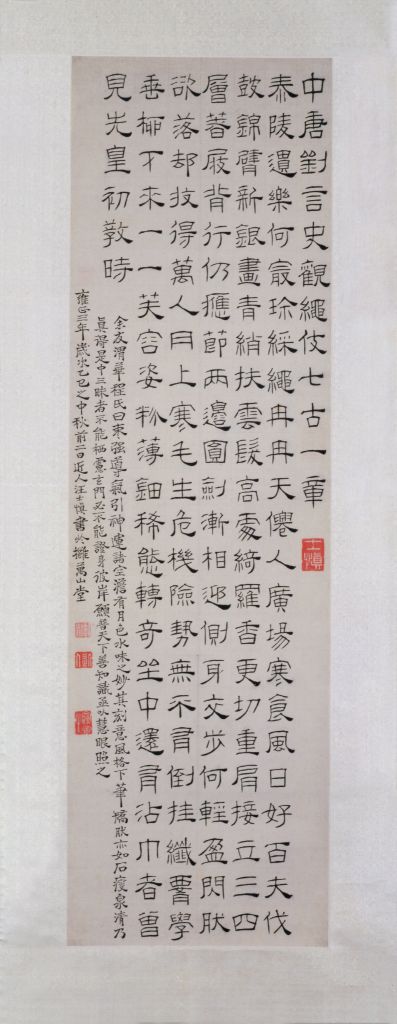 中唐劉言史觀繩伎七古一章
泰陵遺樂何最珍綵繩冉冉天僊人廣場寒食風日好百夫伐
鼓錦臂新銀畫青綃扶雲髮高處綺羅香更切重肩接立三四
層著屐背行仍應節兩邊圓劍漸相迎側身交步何輕盈閃肰
欲落却收得萬人肉上寒毛生危機險勢無不有倒挂纖腰學
垂柳下來一一芙容姿粉薄鈿稀態轉奇坐中還有沾巾者曾
見先皇初教時
余友渭華程氏曰束強導氣引神運諸空澹有月色水味之妙其刻意風格下筆肰亦如石瘦泉清乃
真得是中三昧者不能栖靈言門必不能證身彼岸願普天下善知識並以慧眼照之
雍正三年歲次乙巳之中秋前二日近人汪士慎書於萬山堂
士慎